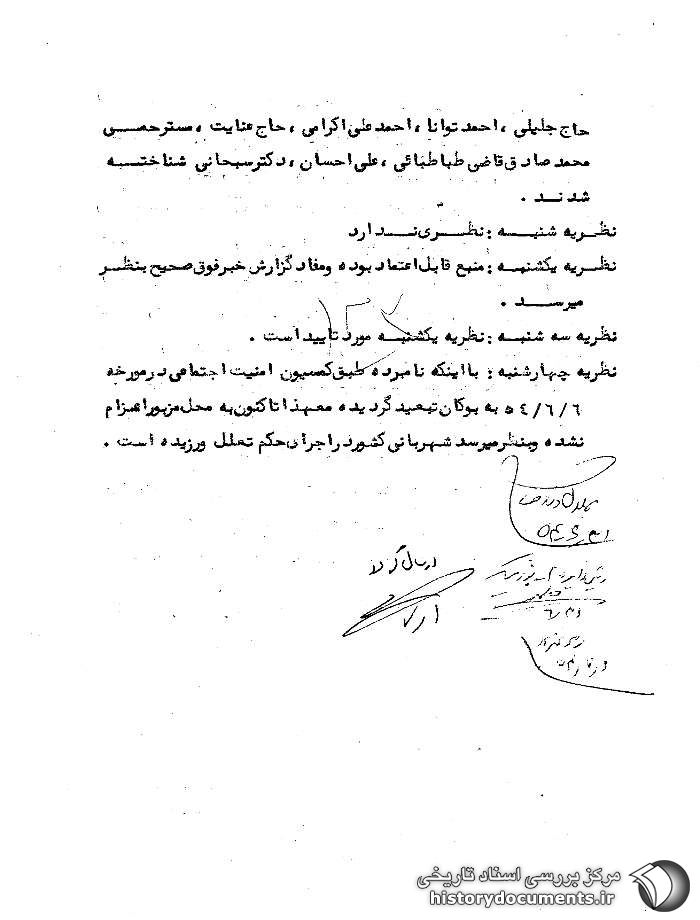 حاج جلیلی ، احمد توانا ، احمد علی اکرامی ، حاج عنایت ، مستر حصی
محمد صادق قاضی طباطبائی ، علی احسان ، دکتر سبحانی شناخته
شدند .
نظریه شنبه : نظری ندارد
نظریه یکشنبه : منبع قابل اعتماد بوده و مفاد گزارش خبر فوق صحیح بنظر
میرسد .
نظریه سه شنبه : نظریه یکشنبه مورد تایید است .
نظریه چهارشنبه : با اینکه نامبرده طبق کمسیون امنیت اجتماعی در مورخه
۵٤/٦/٦ به بوکان تبعید گردیده معهذا تاکنون به محل مزبور اعزام
نشده و بنظر میرسد شهربانی کشور در اجرای حکم تعلل ورزیده است .
ارسال گردد
مرکز بررسی اسناد تاریخی
historydocuments.ir